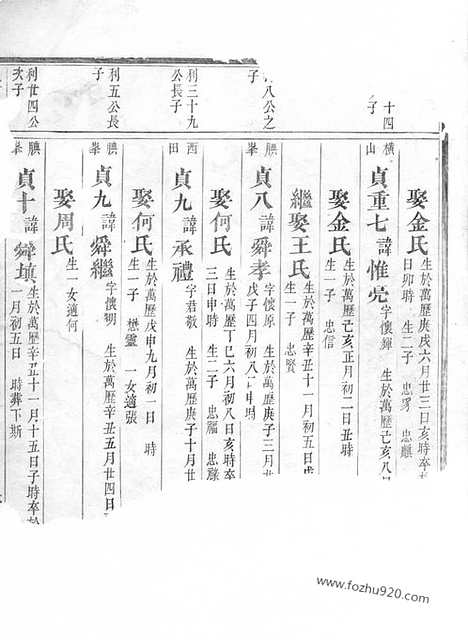 娶金氏 生於萬歷庚戌六月廿三日亥時卒
日卯時 生二子 忠 忠
十四
子
橫山
貞重七 諱惟亮 字懷輝 生於萬歷己亥八月
娶金氏 生於萬歷己亥正月初二日丑時
生一子 忠信
繼娶王氏 生於萬歷辛丑十一月初五日戌
生一子 忠賢
八公之
子
腆峯
貞八 諱舜孝 字懷原 生於萬歷庚子三月廿
戊子四月初八日申時
娶何氏 生於萬歷丁巳六月初八日亥時卒
三日申時 生二子 忠福 忠祿
利三十九
公長子
西田
貞九 諱承禮 字君敬 生於萬歷庚子十月廿
娶何氏 生於萬歷戊申九月初一日 時
生一子 懋靈 一女適張
利五公長
子
腆峯
貞九 諱舜繼 字懷明 生於萬歷辛丑五月廿四日
娶周氏 生一女適何
利廿四公
次子
腆峯
貞十 諱舜填 生於萬歷辛丑十一月十五日子時卒於
一月初五日 時葬下斯
www.fozhu920.com